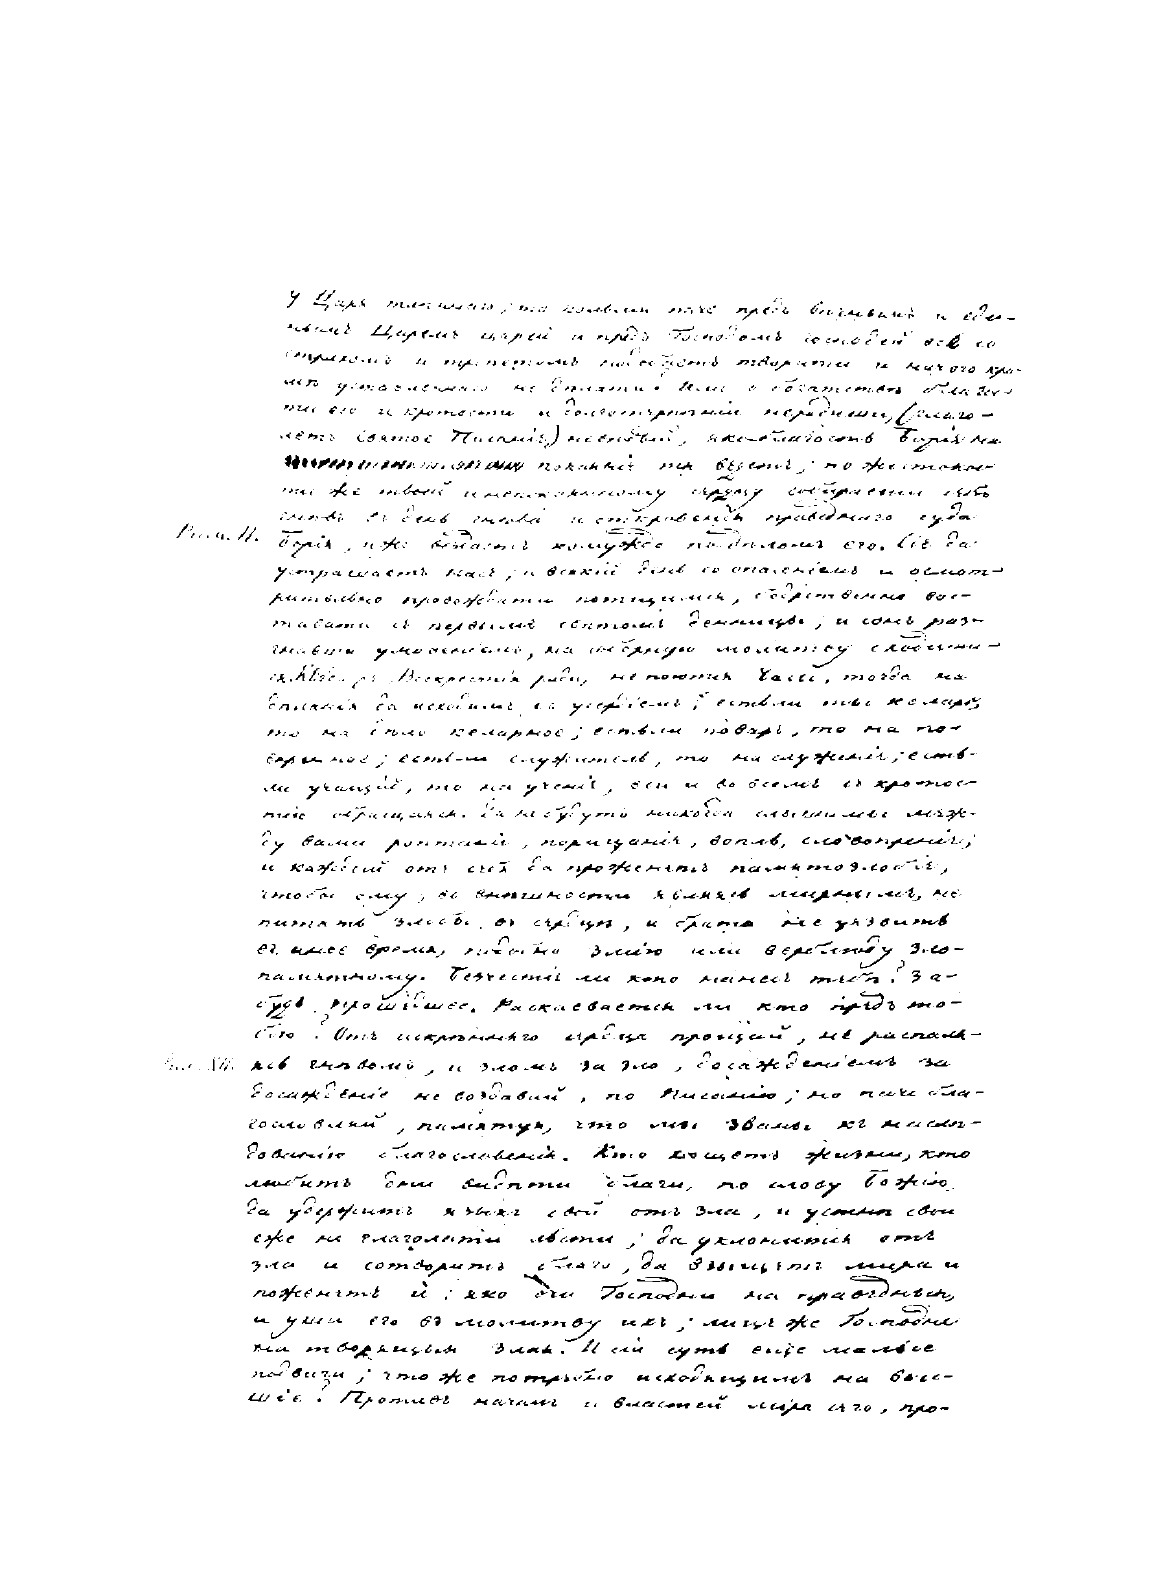 у Царя тлѣннаго; то кольми паче предъ вѣчнымъ и еди-
нымъ Царемъ царей и предъ Господомъ господей все со
страхомъ и трепетомъ подобаетъ творити и ничего кро-
мѣ уставленнаго не дѣлати. Или о богатствѣ благос-
ти его и кротости и долготерпѣніи нерадиши, (глаго-
летъ святое Писаніе,) невѣдый, яко благость Божія на
покаяніе тя ведетъ; по жестокос-
ти же твоей и непокаянному сердцу собираеши себѣ
гнѣвъ въ день гнѣва и откровенія праведнаго суда
Рим. II.
Божія, иже воздастъ комуждо по дѣломъ его. Сіе да
устрашаетъ насъ; и всякій день со опасеніемъ и осмот-
рительно провождати потщимся, бодрственно вос-
тавати съ первымъ свѣтомъ денницы; и сонъ раз-
гнавши умовеніемъ, на соборную молитву сходити-
ся. Аще въ Воскресенія ради, не поются Часы, тогда на
дѣланія да исходимъ съ усердіемъ; естьли ты келарь,
то на дѣло келарное; естьли поваръ, то на по-
варенное; естьли служитель, то на служеніе; есть-
ли учащій, то на ученіе, вси и во всемъ съ кротос-
тію обращаяся. Да не будутъ никогда слышимы меж-
ду вами роптаніе, порицаніе, вопль, словопреніе;
и каждый отъ себя да проженетъ памятозлобіе,
чтобы ему, во внѣшности являясь мирнымъ, не
питать злобы въ сердцѣ, и брата не уязвить
въ иное время, подобно змію или верблюду зло-
памятному. Безчестіе ли кто нанесъ тебѣ? за-
будь прошедшее. Раскаевается ли кто предъ то-
бою? Отъ искренняго сердца прощай, не распаля-
ясь гнѣвомъ, и зломъ за зло, досажденіемъ за
досажденіе не воздавай, по Писанію; но паче бла-
гословляй, памятуя, что мы званы къ наслѣ-
дованію благословенія. Кто хощетъ жизни, кто
любитъ дни видѣти благи, по слову Божію,
да удержитъ языкъ свой отъ зла, и устнѣ свои
еже не глаголати льсти; да уклонится отъ
зла и сотворитъ благо, да взыщетъ мира и
поженетъ и; яко очи Господни на праведныя,
и уши его въ молитву ихъ; лице же Господне
на творящыя злая. И сіи суть еще малые
подвиги; что же потребно исходящимъ на выс-
шіе? Противъ началъ и властей міра сего, про-